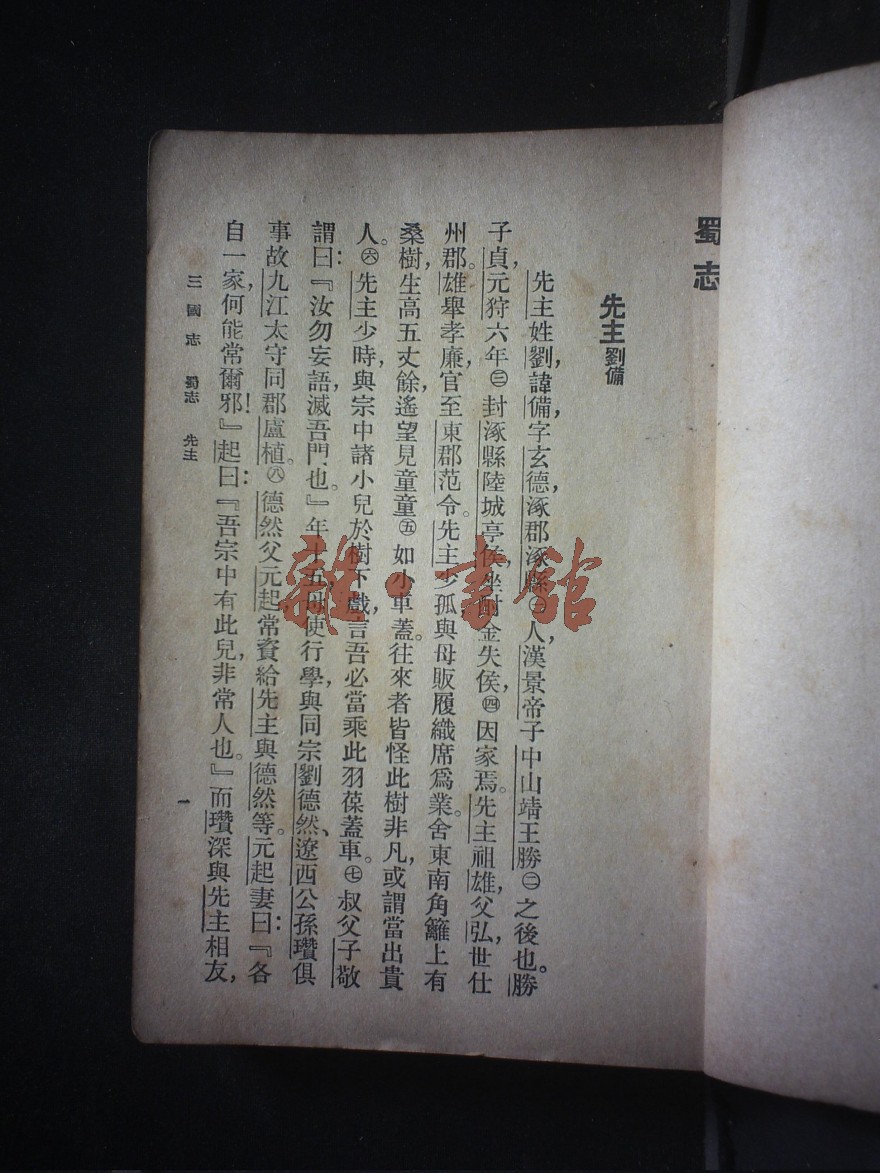 蜀志
先主劉備
先主姓劉，諱備，字玄德，涿郡涿縣㊀人，漢景帝子中山靖王勝㊁之後也。勝
子貞，元狩六年㊂封涿縣陸城亭侯，坐酎金失侯，㊃因家焉。先主祖雄，父弘，世仕
州郡。雄舉孝廉，官至東郡范令。先主少孤，與母販履織席爲業。舍東南角籬上有
桑樹，生高五丈餘，遙望見童童㊄如小車蓋。往來者皆怪此樹非凡，或謂當出貴
人。㊅先主少時，與宗中諸小兒於樹下戲，言吾必當乘此羽葆蓋車。㊆叔父子敬
謂曰：『汝勿妄語，滅吾門也。』年十五，母使行學，與同宗劉德然、遼西公孫瓚俱
事故九江太守同郡盧植。㊇德然父元起常資給先主，與德然等。元起妻曰：『各
自一家，何能常爾邪！』起曰：『吾宗中有此兒，非常人也。』而瓚深與先主相友，
三國志 蜀志 先主
一
雜·書館